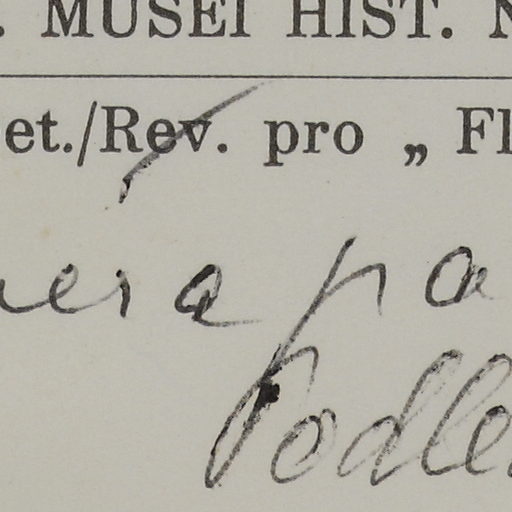 . MUSEI HIST. N
et./Rev. pro „ Fl
era pa
Podle